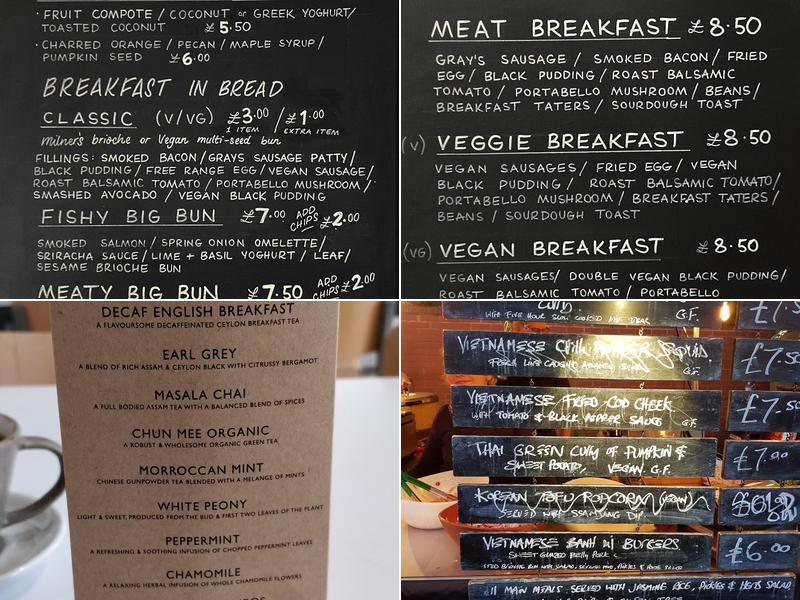 · FRUIT COMPOTE / COCONUT or GREEK YOGHURT/
TOASTED COCONUT £5.50
· CHARRED ORANGE / PECAN / MAPLE SYRUP/
PUMPKIN SEED £6.00
BREAKFAST IN BREAD
CLASSIC (V/VG) £3.00 / £1.00
1 ITEM EXTRA ITEM
Milner's brioche or Vegan multi-seed bun
FILLINGS: SMOKED BACON/GRAYS SAUSAGE PATTY/
BLACK PUDDING/FREE RANGE EGG/VEGAN SAUSAGE/
ROAST BALSAMIC TOMATO / PORTABELLO MUSHROOM/
SMASHED AVOCADO / VEGAN BLACK PUDDING
FISHY BIG BUN £7.00 ADD CHIPS £2.00
SMOKED SALMON / SPRING ONION OMELETTE/
SRIRACHA SAUCE / LIME + BASIL YOGHURT / LEAF/
SESAME BRIOCHE BUN
MEATY BIG BUN £7.50 ADD CHIPS £2.00
MEAT BREAKFAST £8.50
GRAY'S SAUSAGE / SMOKED BACON / FRIED
EGG / BLACK PUDDING / ROAST BALSAMIC
TOMATO / PORTABELLO MUSHROOM / BEANS/
BREAKFAST TATERS / SOURDOUGH TOAST
(V) VEGGIE BREAKFAST £8.50
VEGAN SAUSAGES / FRIED EGG / VEGAN
BLACK PUDDING / ROAST BALSAMIC TOMATO/
PORTABELLO MUSHROOM / BREAKFAST TATERS /
BEANS / SOURDOUGH TOAST
(VG) VEGAN BREAKFAST £8.50
VEGAN SAUSAGES/ DOUBLE VEGAN BLACK PUDDING/
ROAST BALSAMIC TOMATO / PORTABELLO
DECAF ENGLISH BREAKFAST
A FLAVOURSOME DECAFFEINATED CEYLON BREAKFAST TEA
EARL GREY
A BLEND OF RICH ASSAM & CEYLON BLACK WITH CITRUSSY BERGAMOT
MASALA CHAI
A FULL BODIED ASSAM TEA WITH A BALANCED BLEND OF SPICES
CHUN MEE ORGANIC
A ROBUST & WHOLESOME ORGANIC GREEN TEA
MORROCCAN MINT
CHINESE GUNPOWDER TEA BLENDED WITH A MELANGE OF MINTS
WHITE PEONY
LIGHT & SWEET, PRODUCED FROM THE BUD & FIRST TWO LEAVES OF THE PLANT
PEPPERMINT
A REFRESHING & SOOTHING INFUSION OF CHOPPED PEPPERMINT LEAVES
CHAMOMILE
A RELAXING HERBAL INFUSION OF WHOLE CHAMOMILE FLOWERS
CURRY
WITH FIVE HOUR SLOW COOKED G.F. £7.5
VIETNAMESE CHILLI SQUID £7.5
G.F.
VIETNAMESE FRIED COD CHEEK £7.50
WITH TOMATO & BLACK PEPPER SAUCE G.F.
THAI GREEN CURRY OF PUMPKIN & £7.00
SWEET POTATO, VEGAN. G.F.
KOREAN TOFU POPCORN (VEGAN) SOLD OUT
SERVED WITH SSAMJANG DIP
VIETNAMESE BANH MI BURGERS £6.00
SWEET GLAZED BELLY PORK
11 MAIN MEALS SERVED WITH JASMINE RICE, PICKLES & HERB SALAD